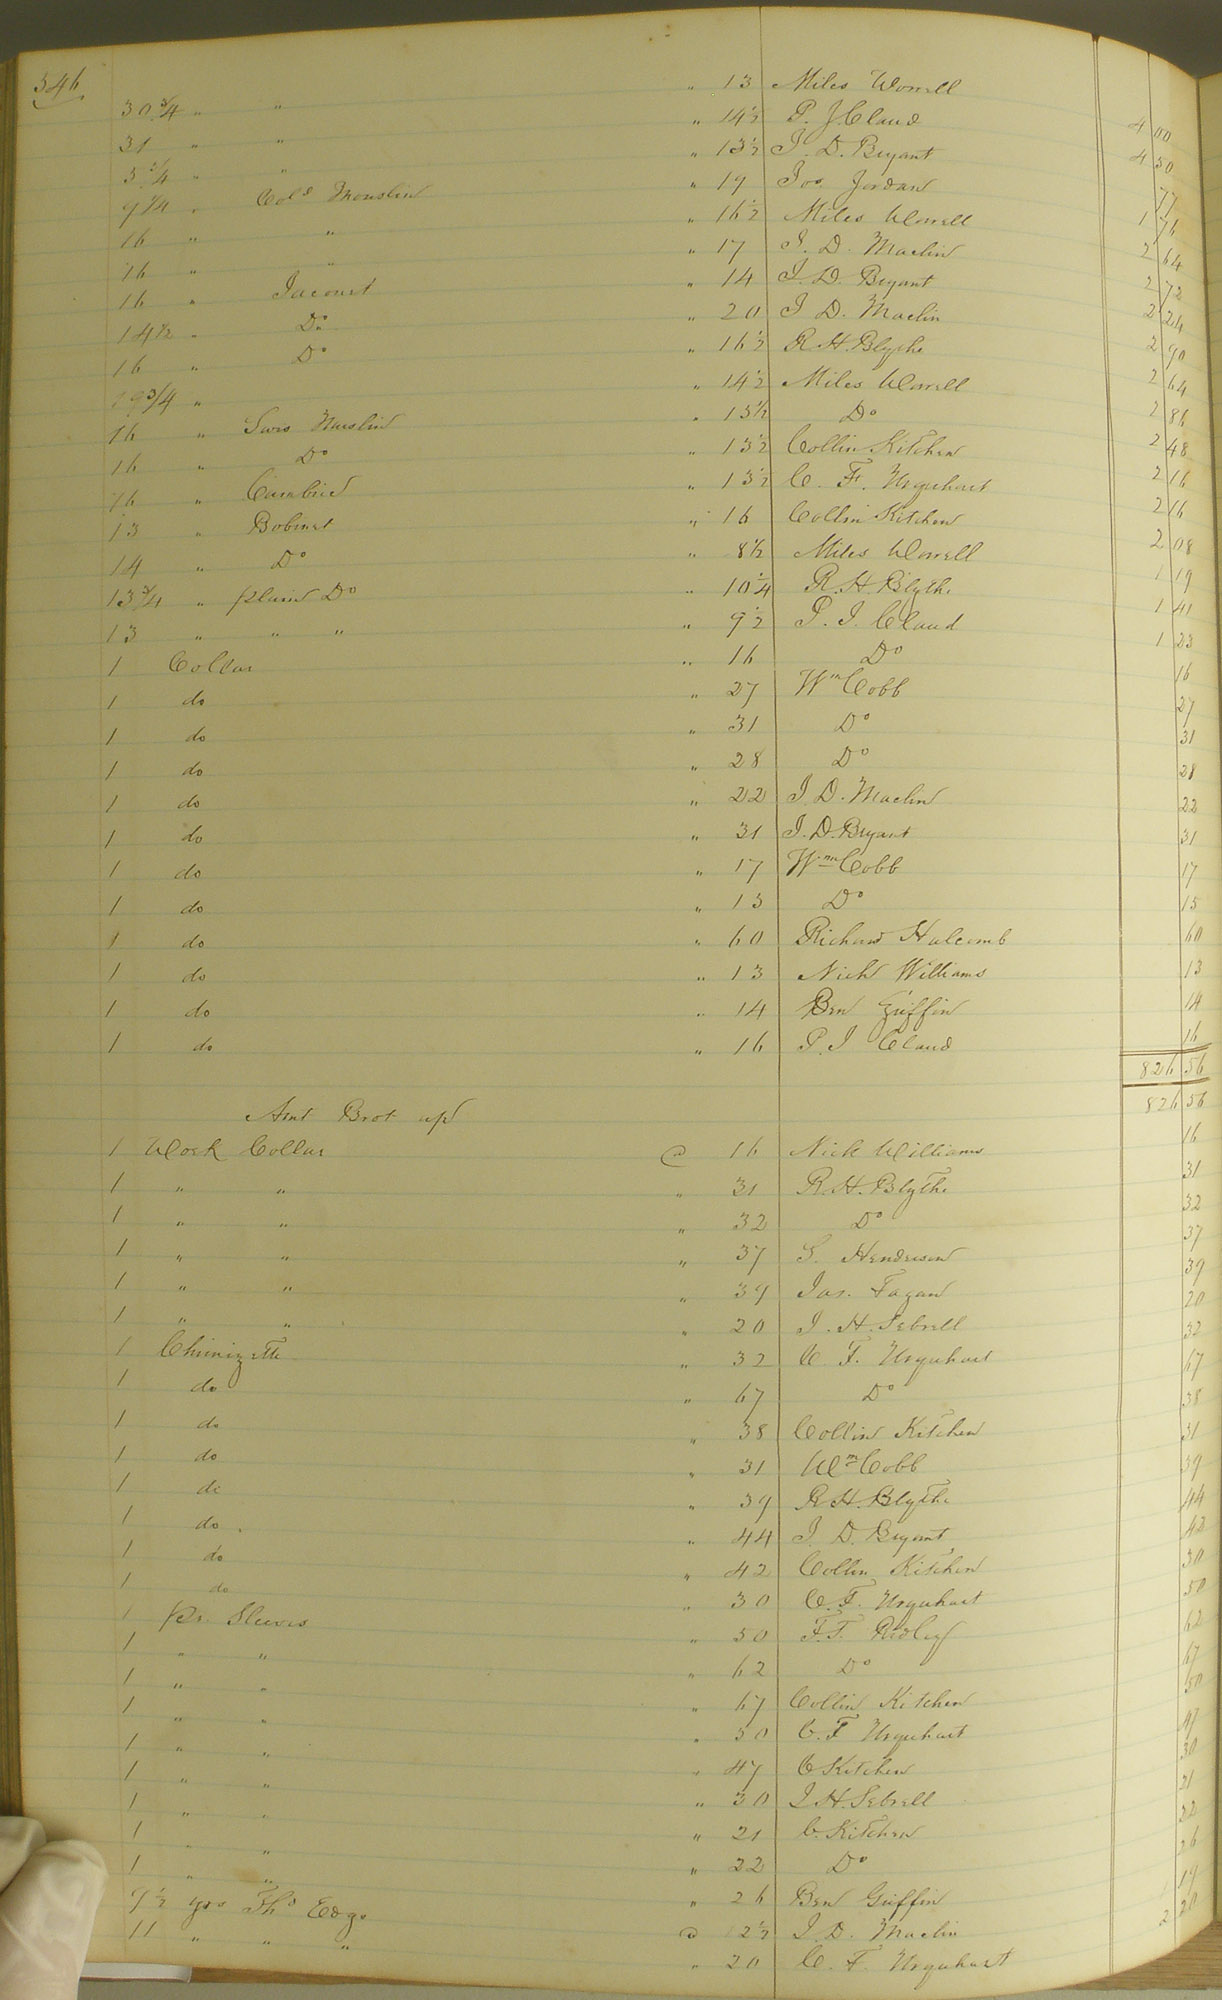 346
30 3/4 " " " 13 Miles Worrell 4 00
31 " " " 14 1/2 P. J. Claud 4 50
5 3/4 " " " 13 1/2 J. D. Bryant 77
9 1/4 " Cold Mouslin " 19 Jos. Jordan 1 76
16 " " " 16 1/2 Miles Worrell 2 64
16 " " " 17 J. D. Maclin 2 72
16 " Jaconet " 14 J. D. Bryant 2 24
14 1/2 " Do " 20 J D. Maclin 2 90
16 " Do " 16 1/2 R. H. Blythe 2 64
19 3/4 " " 14 1/2 Miles Worrell 2 86
16 " Swis Muslin " 15 1/2 Do 2 48
16 " Do " 13 1/2 Collin Kitchen 2 16
16 " Cambric " 13 1/2 C. F. Urquhart 2 16
13 " Bobinet " 16 Collin Kitchen 2 08
14 " Do " 8 1/2 Miles Worrell 1 19
13 3/4 " plain Do " 10 1/4 R. H. Blythe 1 41
13 " " " " 9 1/2 P. J. Claud 1 23
1 Collar " 16 Do 16
1 do " 27 Wm Cobb 27
1 do " 31 Do 31
1 do " 28 Do 28
1 do " 22 J. D. Maclin 22
1 do " 31 J. D. Bryant 31
1 do " 17 Wm Cobb 17
1 do " 15 Do 15
1 do " 60 Richard Halcomb 60
1 do " 13 Nick Williams 13
1 do " 14 Ben Griffin 14
1 do " 16 P. J Claud 16
826 56
Amt Brot up 826 56
1 Work Collar @ 16 Nick Williams 16
1 " " " 31 R. H. Blythe 31
1 " " " 32 Do 32
1 " " " 37 S. Henderson 37
1 " " " 39 Jas. Fagan 39
1 " " " 20 J. H. Sebrell 20
1 Chimizette " 32 C. F. Urquhart 32
1 do " 67 Do 67
1 do " 38 Collin Kitchen 38
1 do " 31 Wm Cobb 31
1 do " 39 R. H. Blythe 39
1 do " 44 J. D. Bryant 44
1 do " 42 Collin Kitchen 42
1 do " 30 C. F. Urquhart 30
1 Pr. Sleeves " 50 F. T. Ridley 50
1 " " " 62 Do 62
1 " " " 67 Collin Kitchen 67
1 " " " 50 C. F Urquhart 50
1 " " " 47 C Kitchen 47
1 " " " 30 J H. Sebrell 30
1 " " " 21 C. Kitchen 21
1 " " " 22 Do 22
1 " " " 26 Ben Griffin 26
9 1/2 yds Thd Edge @ 12 1/2 J. D. Maclin 1 19
11 " " " " 20 C. F. Urquhart 2 20